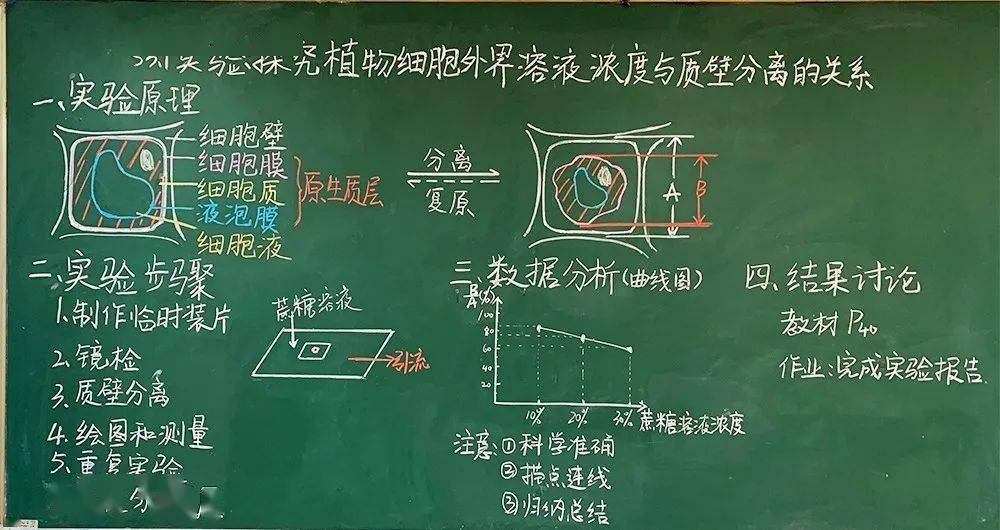 实验探究植物细胞外界溶液浓度与质壁分离的关系
一、实验原理
细胞壁
细胞膜
细胞质
液泡膜
细胞液
原生质层
分离
复原
A
B
二、实验步骤
1.制作临时装片
2.镜检
3.质壁分离
4.绘图和测量
5.重复实验
蔗糖溶液
引流
三、数据分析(曲线图)
(%)
100
80
60
40
20
10% 20% 30% 蔗糖溶液浓度
注意:①科学准确
②描点连线
③归纳总结
四.结果讨论
教材P40
作业:完成实验报告